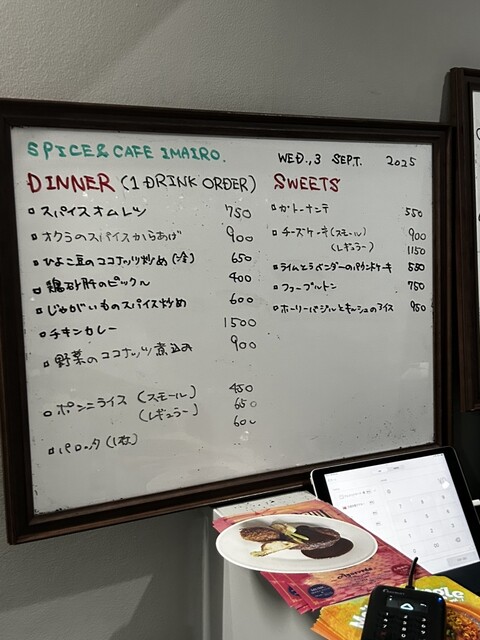 SPICE & CAFE IMAIRO.
WED., 3 SEPT. 2025
DINNER (1 DRINK ORDER)
スパイスオムレツ 750
オクラのスパイスからあげ 900
ひよこ豆のココナッツ炒め (冷) 650
鶏砂肝のピックル 400
じゃがいものスパイス炒め 600
チキンカレー 1500
野菜のココナッツ煮込み 900
ポンニライス (スモール) 450
(レギュラー) 650
パロッタ (1枚) 600
SWEETS
ガトーナンテ 550
チーズケーキ (スモール) 900
(レギュラー) 1150
ライムとラベンダーのパウンドケーキ 550
ファーブルトン 750
ホーリーバジルとキルシュのアイス 950